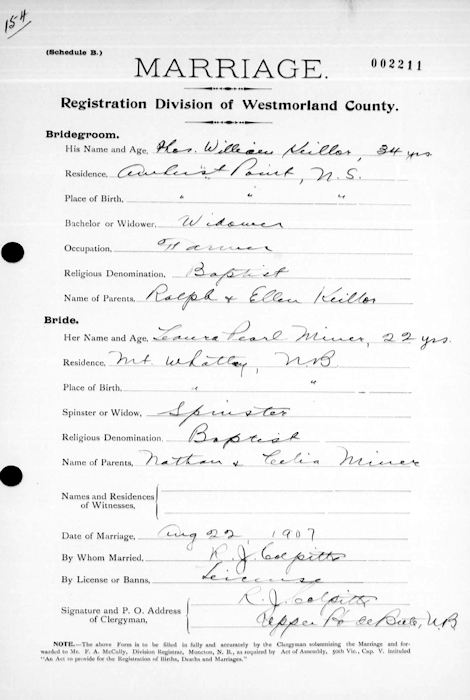 154
(Schedule B.)
MARRIAGE.
002211
Registration Division of Westmorland County.
Bridegroom.
His Name and Age, Thos. William Keillor, 34 yrs
Residence, Amherst Point, N.S.
Place of Birth, " " "
Bachelor or Widower, Widower
Occupation, Farmer
Religious Denomination, Baptist
Name of Parents, Ralph & Ellen Keillor
Bride.
Her Name and Age, Laura Pearl Miner, 22 yrs.
Residence, Mt Whatley, NB
Place of Birth, " "
Spinster or Widow, Spinster
Religious Denomination, Baptist
Name of Parents, Nathan & Celia Miner
Names and Residences
of Witnesses,
Date of Marriage, Aug 22, 1907
By Whom Married, R. J. Colpitts
By License or Banns, License
R. J. Colpitts
Signature and P. O. Address
of Clergyman, Upper Pt de Bute, NB
NOTE.—The above Form is to be filled in fully and accurately by the Clergyman solemnising the Marriage and for-
warded to Mr. F. A. McCully, Division Registrar, Moncton, N. B., as required by Act of Assembly, 50th Vic., Cap. V. intituled
"An Act to provide for the Registration of Births, Deaths and Marriages."